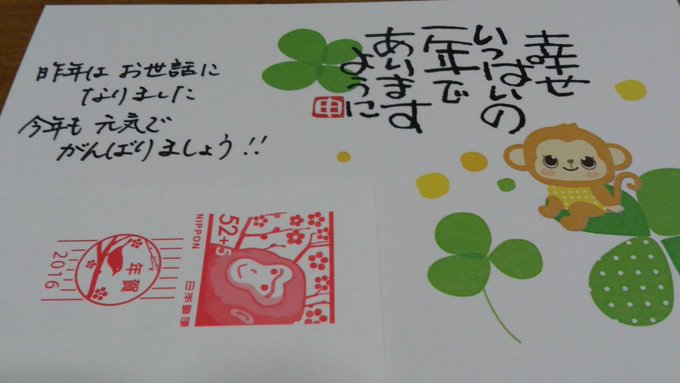 幸せ
いっぱいの
一年で
あります
ように
昨年は お世話に
なりました
今年も 元気で
がんばりましょう!!
52+5
NIPPON
日本郵便
年賀
2016